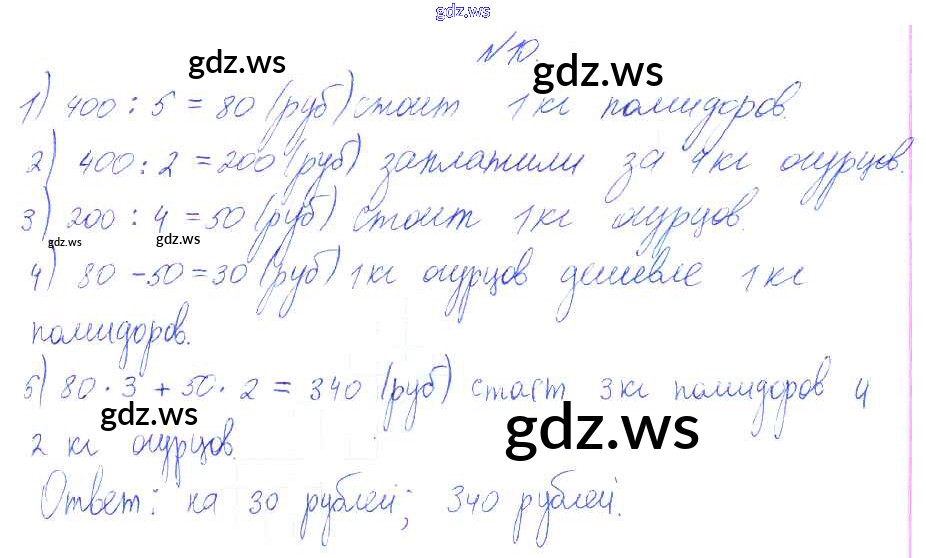 gdz.ws
gdz.ws
№10.
gdz.ws
1) 400 : 5 = 80 (руб) стоит 1 кг помидоров.
2) 400 : 2 = 200 (руб) заплатили за 4 кг огурцов.
3) 200 : 4 = 50 (руб) стоит 1 кг огурцов.
gdz.ws
gdz.ws
4) 80 - 50 = 30 (руб) 1 кг огурцов дешевле 1 кг
помидоров.
5) 80 · 3 + 50 · 2 = 340 (руб) стоят 3 кг помидоров и
gdz.ws
gdz.ws
2 кг огурцов.
Ответ: на 30 рублей; 340 рублей.